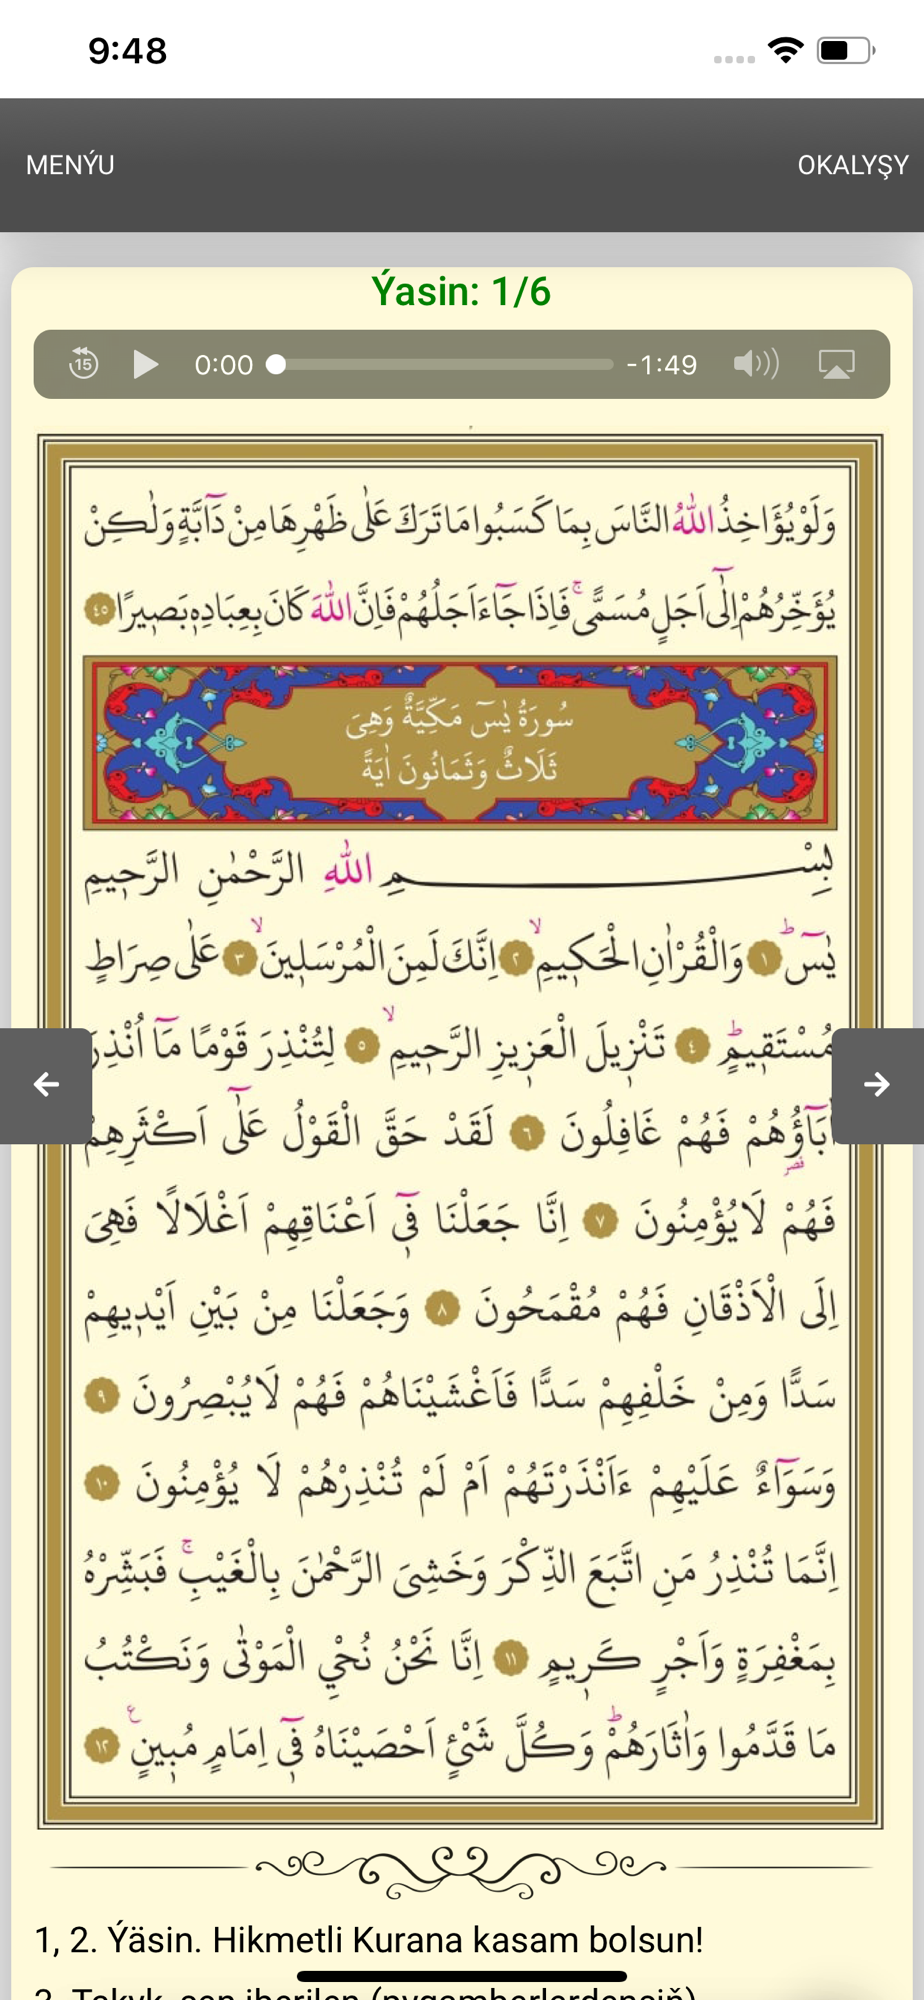 9:48
MENÝU
OKALYŞY
Ýasin: 1/6
15
0:00
-1:49
وَلَوْ يُؤَاخِذُ اللّٰهُ النَّاسَ بِمَا كَسَبُوا مَا تَرَكَ عَلٰى ظَهْرِهَا مِنْ دَٓابَّةٍ وَلٰكِنْ
يُؤَخِّرُهُمْ اِلٰٓى اَجَلٍ مُسَمًّىۚ فَاِذَا جَٓاءَ اَجَلُهُمْ فَاِنَّ اللّٰهَ كَانَ بِعِبَادِه۪ بَص۪يرًا ﴿٤٥﴾
سُورَةُ يٰسٓ مَكِّيَّةٌ وَهِىَ
ثَلَاثٌ وَثَمَانُونَ اٰيَةً
بِسْمِ اللّٰهِ الرَّحْمٰنِ الرَّح۪يمِ
يٰسٓۜ ﴿١﴾ وَالْقُرْاٰنِ الْحَك۪يمِۙ ﴿٢﴾ اِنَّكَ لَمِنَ الْمُرْسَل۪ينَۙ ﴿٣﴾ عَلٰى صِرَاطٍ
مُسْتَق۪يمٍۜ ﴿٤﴾ تَنْز۪يلَ الْعَز۪يزِ الرَّح۪يمِۙ ﴿٥﴾ لِتُنْذِرَ قَوْمًا مَٓا اُنْذِرَ
اٰبَٓاؤُ۬هُمْ فَهُمْ غَافِلُونَ ﴿٦﴾ لَقَدْ حَقَّ الْقَوْلُ عَلٰٓى اَكْثَرِهِمْ
فَهُمْ لَا يُؤْمِنُونَ ﴿٧﴾ اِنَّا جَعَلْنَا ف۪ٓى اَعْنَاقِهِمْ اَغْلَالًا فَهِىَ
اِلَى الْاَذْقَانِ فَهُمْ مُقْمَحُونَ ﴿٨﴾ وَجَعَلْنَا مِنْ بَيْنِ اَيْد۪يهِمْ
سَدًّا وَمِنْ خَلْفِهِمْ سَدًّا فَاَغْشَيْنَاهُمْ فَهُمْ لَا يُبْصِرُونَ ﴿٩﴾
وَسَوَٓاءٌ عَلَيْهِمْ ءَاَنْذَرْتَهُمْ اَمْ لَمْ تُنْذِرْهُمْ لَا يُؤْمِنُونَ ﴿١٠﴾
اِنَّمَا تُنْذِرُ مَنِ اتَّبَعَ الذِّكْرَ وَخَشِىَ الرَّحْمٰنَ بِالْغَيْبِۚ فَبَشِّرْهُ
بِمَغْفِرَةٍ وَاَجْرٍ كَر۪يمٍ ﴿١١﴾ اِنَّا نَحْنُ نُحْيِ الْمَوْتٰى وَنَكْتُبُ
مَا قَدَّمُوا وَاٰثَارَهُمْۜ وَكُلَّ شَيْءٍ اَحْصَيْنَاهُ ف۪ٓى اِمَامٍ مُب۪ينٍ ﴿١٢﴾
1, 2. Ýäsin. Hikmetli Kurana kasam bolsun!